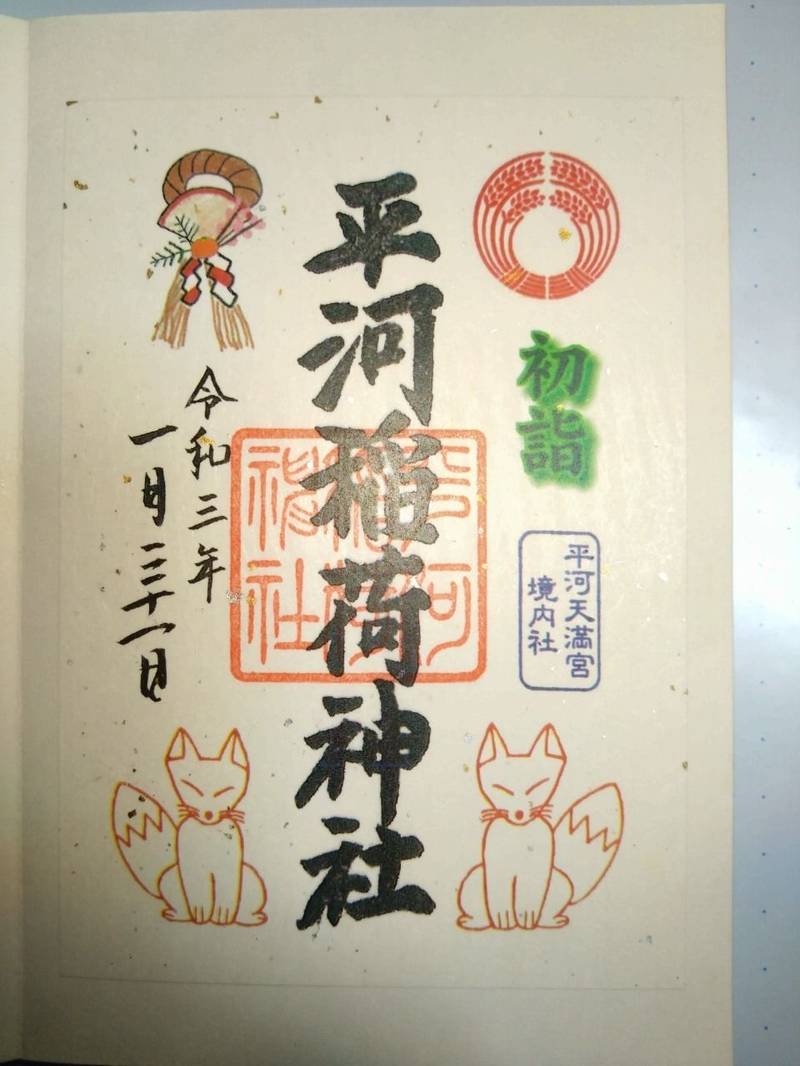 初詣
平河天満宮
境内社
平河稲荷神社
平河
稲荷
神社
令和三年
一月三十一日